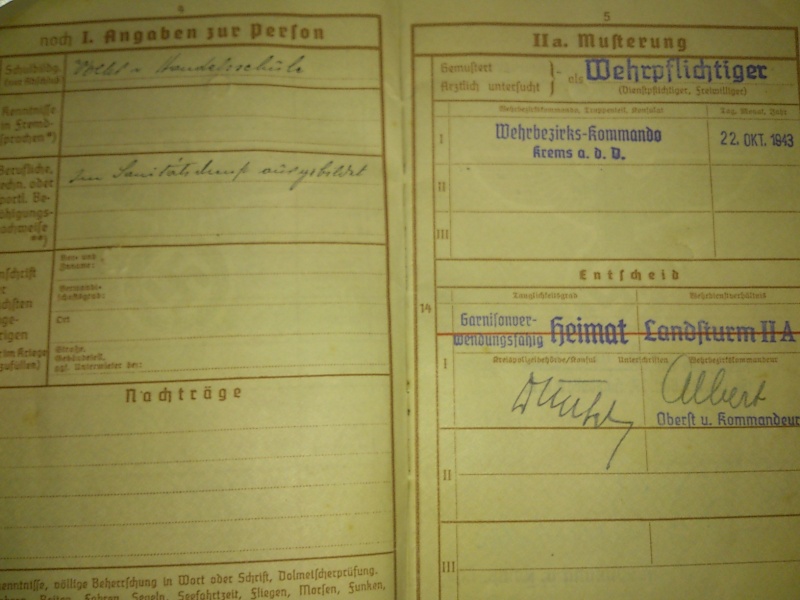 4
noch I. Angaben zur Person
Schulbildg.
(mit Abschluß)
Volks u Handelsschule
Kenntnisse
in Fremd-
sprachen*)
Berufliche,
techn. oder
sportl. Be-
fähigungs-
nachweise
**)
Im Sanitätsdienst ausgebildet
Vor- und
Zuname:
Verwandt-
schaftsgrad:
Ort
Straße,
Gebäudeteil,
ggf. Untermieter bei:
nschrift
er
chsten
nge-
rigen
(im Kriege
zufüllen)
Nachträge
enntnisse, völlige Beherrschung in Wort oder Schrift, Dolmetscherprüfung.
Reiten, Fahren, Segeln, Seefahrtzeit, Fliegen, Morsen, Funken,
5
IIa. Musterung
Gemustert
Ärztlich untersucht } als Wehrpflichtiger
(Dienstpflichtiger, Freiwilliger)
Wehrbezirkskommando, Truppenteil, Konsulat
Tag, Monat, Jahr
I
Wehrbezirks-Kommando
Krems a. d. D.
22. OKT. 1943
II
III
Entscheid
Tauglichkeitsgrad
Wehrdienstverhältnis
14
Garnisonver-
wendungsfähig Heimat
Landsturm II A
I
Kreispolizeibehörde/Konsul
Unterschriften
Wehrbezirkskommandeur
Albert
Oberst u. Kommandeur
II
III